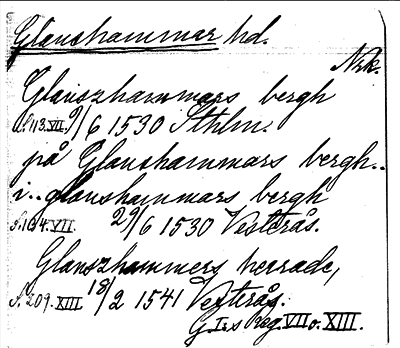 Glanshammar hd.
Nrk.
Glanszhammars bergh
s. 113. VII. 9/6 1530 Sthlm.
på Glanshammars bergh..
i.. glanshammars bergh
s. 104. VII. 29/6 1530 Vesterås.
Glanszhammers herrade,
s. 209. XIII 18/2 1541 Vesterås.
G. I:s Reg. VII o. XIII.